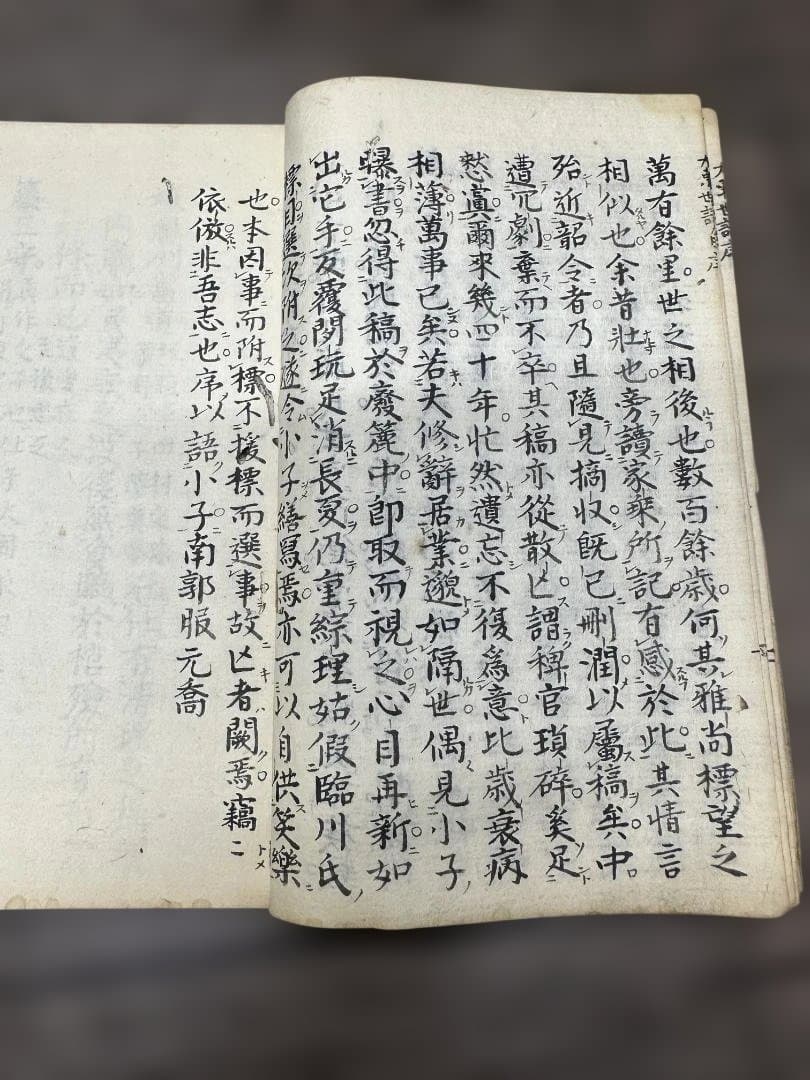 大東世語序
萬有餘里世之相後也數百餘歲何其雅尚標望之
相似也余昔壯也旁讀家乘所記有感於此其情言
殆近韶令者乃且隨見摘收既已刪潤以屬稿矣中
遭冗劇棄而不卒其稿亦從散亡謂稗官瑣碎奚足
慭寘爾來幾四十年忙然遺忘不復爲意比歲衰病
相薄萬事已矣若夫修辭居業邈如隔世偶見小子
曝書忽得此稿於廢簏中即取而視之心目再新如
出它手反覆閱玩足消長夏仍重綜理姑假臨川氏
標目選次附之遂令小子繕寫焉亦可以自供笑樂
也本因事而附標不援標而選事故亡者闕焉竊〻
依倣非吾志也序以語小子南郭服元喬